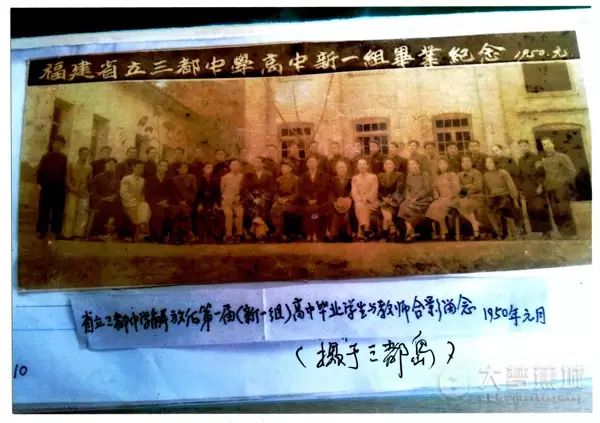 福建省立三都中學高中新一組畢業紀念 1950.元
省立三都中学解放后第一届(新一组)高中毕业学生与教师合影留念 1950年元月
(摄于三都岛)
10
大梦蕉城